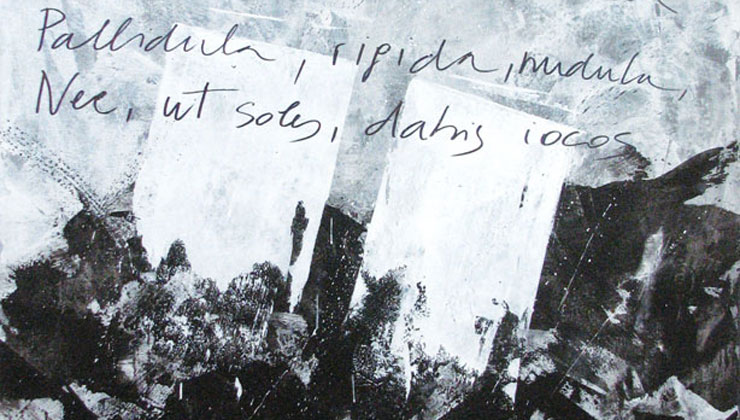 Pallidula, rigida, nudula,
Nec, ut soles, dabis iocos